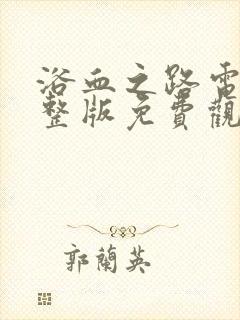 浴血之路電
整版免費觀
郭蘭英